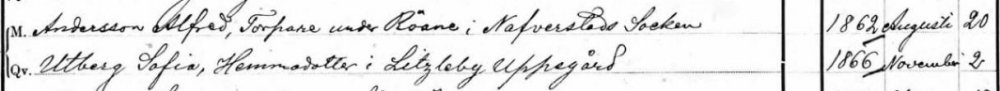 M. Andersson Alfred, Torpare under Röane i Nafverstads Socken 1862 Augusti 20
Qv. Utberg Sofia, Hemmadotter i Litzleby Uppegård 1866 November 2